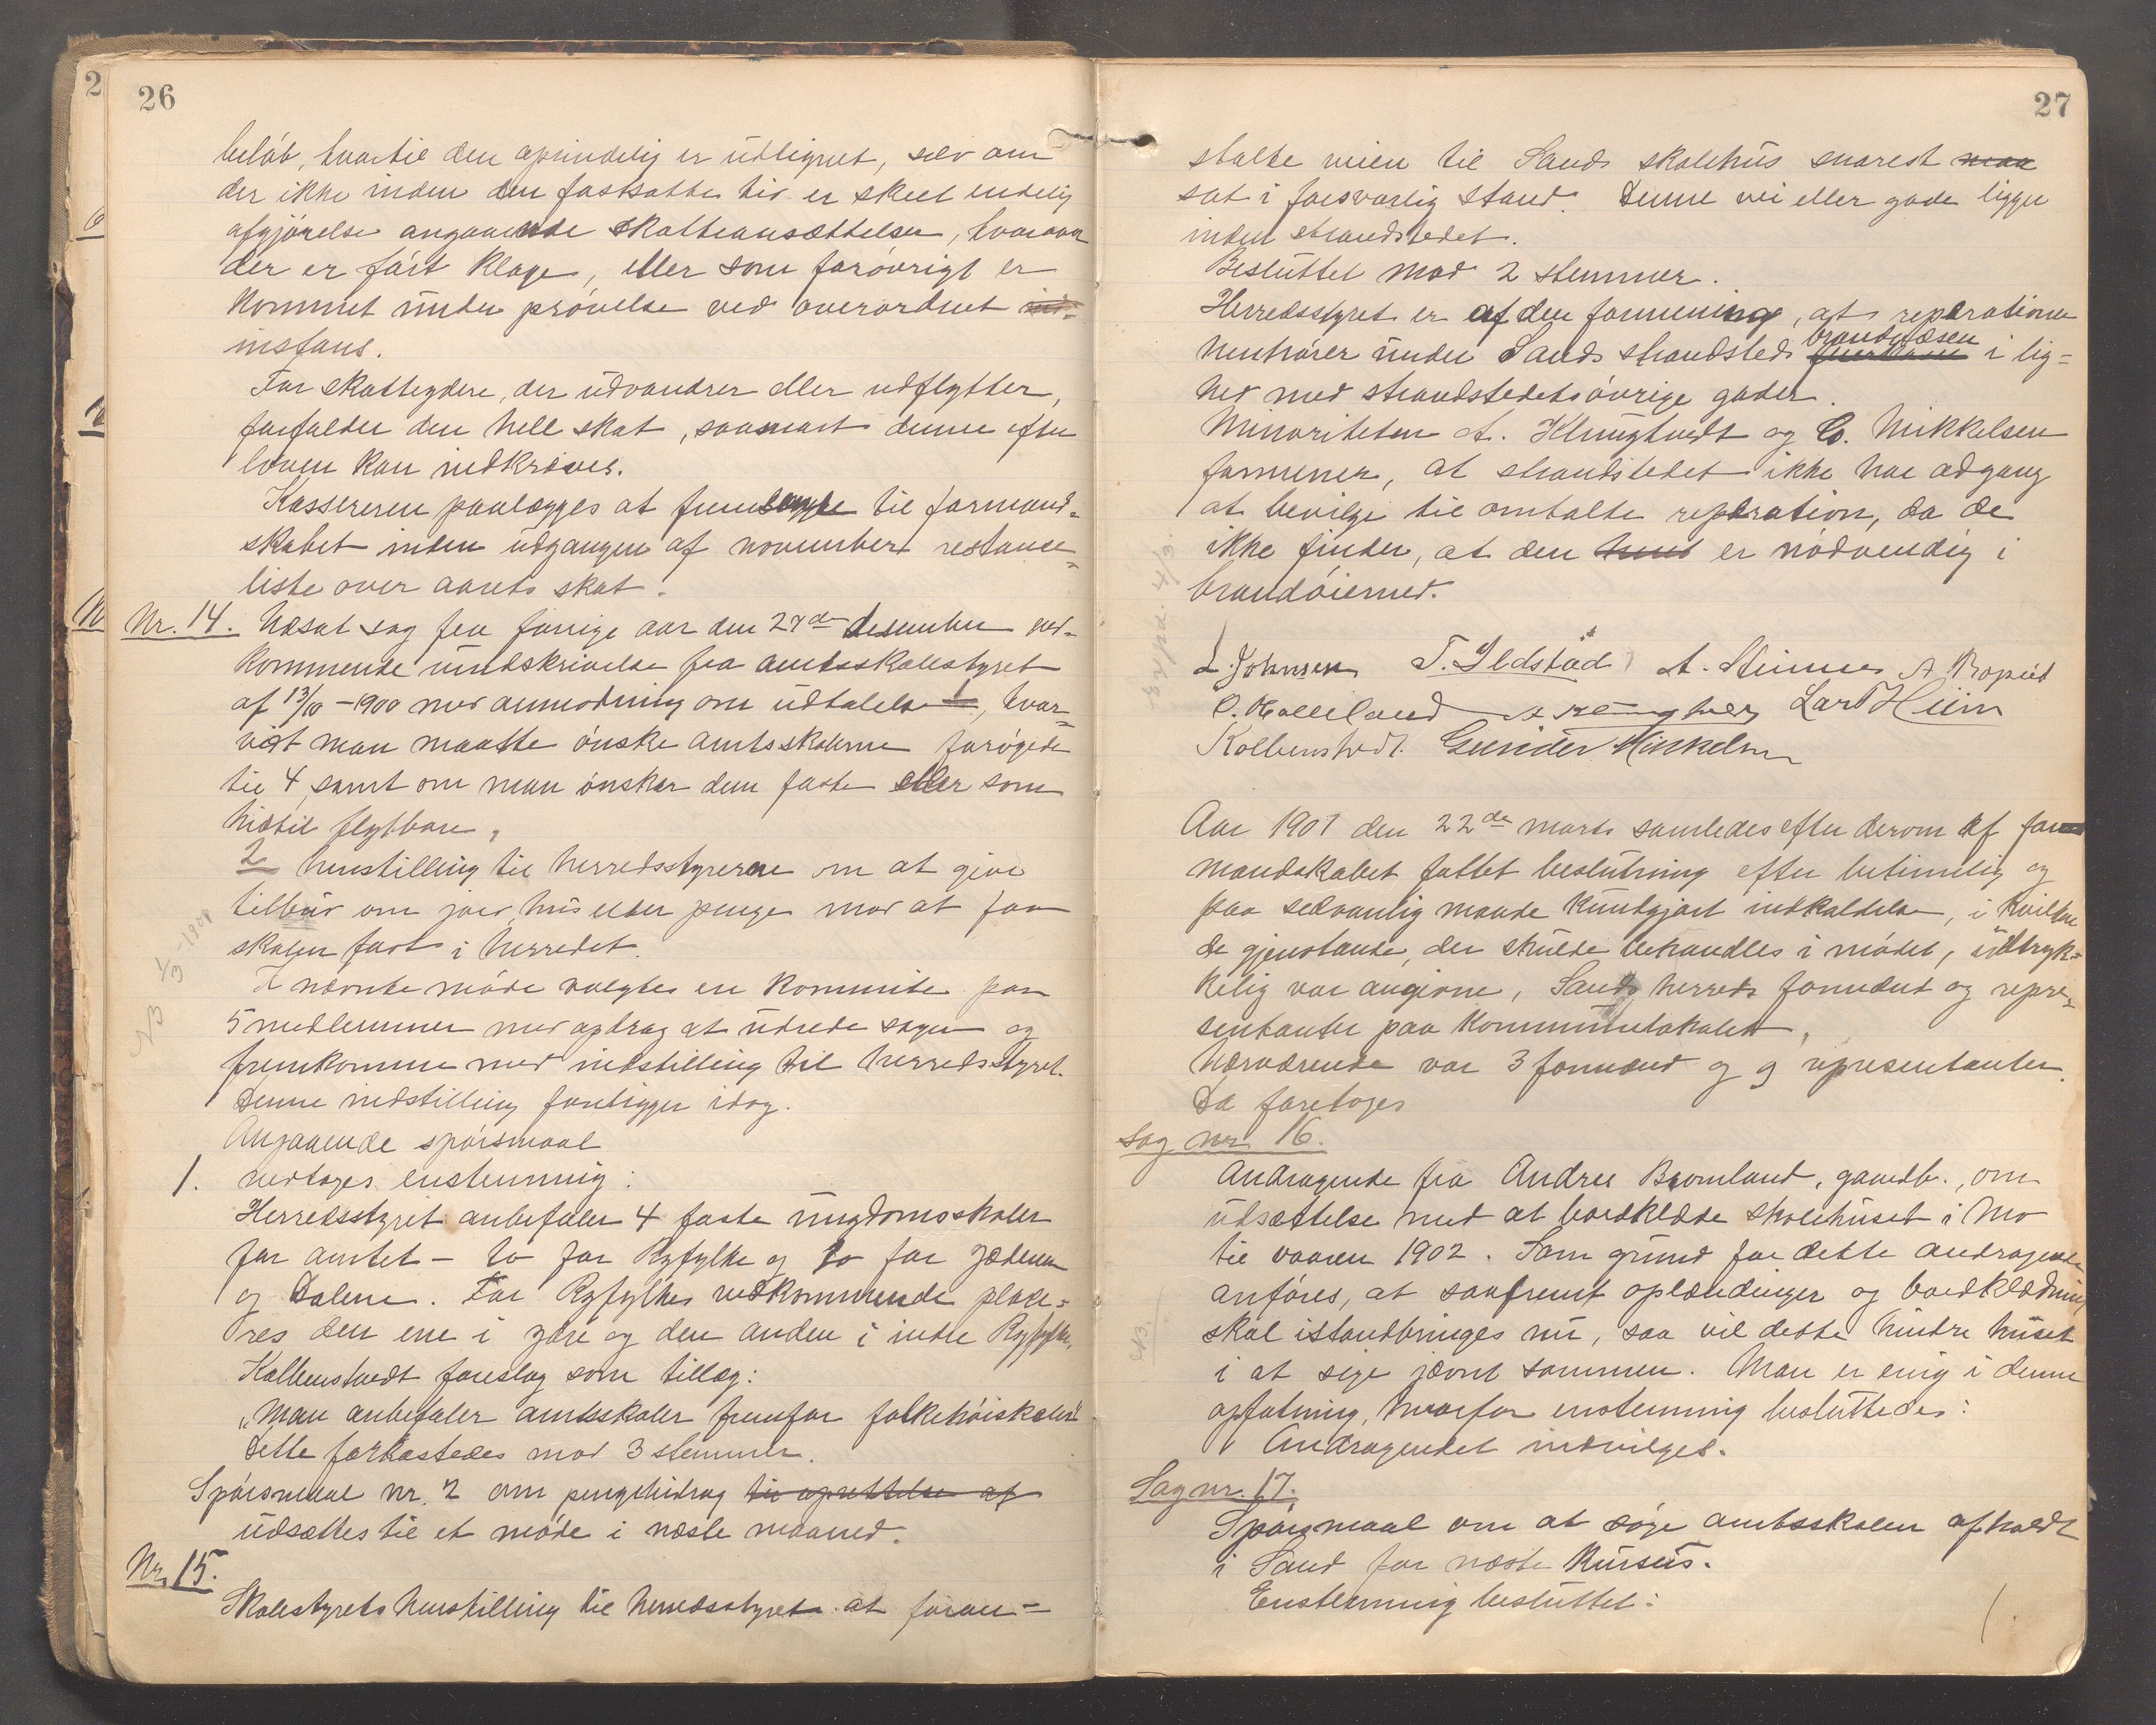 26
beløb, hvortil den oprindelig er udlignet, selv om
der ikke inden den fastsatte tid er skeet endelig
afgjørelse angaaende skatteansættelsen, hvorover
der er ført klage, eller som forøvrigt er
kommet under prøvelse ved overordnet ind-
instans.
For skatteydere, der udvandrer eller udflytter,
forfalder den hele skat, saasnart denne efter
loven kan indkræves.
Kassereren paalægges at fremlægge til formand-
skabet inden udgangen af november restance-
liste over aarets skat.
Nr. 14. Udsat sag fra forrige aar den 27de desember ved-
kommende rundskrivelse fra amtsskolestyret
af 13/10 - 1900 med anmodning om udtalelse 1, hvor-
vidt man maatte ønske amtsskolerne forøgede
til 4 samt om man ønsker dem faste eller som
hidtil flytbare,
2 henstilling til herredsstyrerne om at give
tilbud om jord, hus eller penge mod at faa
skolen fast i herredet.
I nævnte møde valgtes en kommite paa
5 medlemmer med opdrag at udrede sagen og
fremkomme med indstilling til herredsstyret.
Denne indstilling foreligger idag.
Angaaende spørsmaal
1. vedtoges enstemmig:
Herredsstyret anbefaler 4 faste ungdomsskoler
for amtet - to for Ryfylke og to for Jæderen
og Dalene. For Ryfylkes vedkommende place-
res den ene i ydre og den anden i indre Ryfylke.
Kolbenstvedt foreslog som tillæg:
"Man anbefaler amtsskoler fremfor folkehøiskoler"
Dette forkastedes mod 3 stemmer.
Spørsmaal nr. 2 om pengebidrag til oprettelse af
udsættes til et møde i næste maaned.
Nr. 15.
Skolestyrets henstilling til herredsstyret at foran-
27
stalte veien til Sands skolehus snarest maa
sat i forsvarlig stand. Denne vei eller gade ligger
inden strandstedet.
Besluttet mod 2 stemmer.
Herredsstyret er af den formening, at reparationen
henhører under Sands strandsteds brandvæsen i lig-
hed med strandstedets øvrige gader.
Minoriteten A. Klungtvedt og G. Mikkelsen
formener, at strandstedet ikke har adgang
at bevilge til omtalte reparation, da de
ikke finder, at den er nødvendig i
brandøiemed.
L. Johnsen T. Ildstad A. Steinnes A Kopeid
O. Halleland Lars Hiim
Kolbenstvedt. Gunder Mikkelsen
Aar 1901 den 22de marts samledes efter derom af for-
mandskabet fattet beslutning efter betimelig og
paa sedvanlig maade kundgjort indkaldelse, i hvilken
de gjenstande, der skulde behandles i mødet, udtryk-
kelig var angivne, Sands herreds formænd og repre-
sentanter paa kommunelokalet.
Nærværende var 3 formænd og 9 representanter.
Da foretoges
Sag nr. 16.
Andragende fra Andres Bromland, gaardb., om
udsættelse med at bordklæde skolehuset i Mo
til vaaren 1902. Som grund for dette andragende
anføres, at saafremt oplændinger og bordklædning
skal istandbringes nu, saa vil dette hindre huset
i at sige jævnt sammen. Man er enig i denne
opfatning, hvorfor enstemmig besluttedes:
Andragendet indvilges.
Sag nr. 17.
Spørsmaal om at søge amtsskolen afholdt
i Sand for næste kursus.
Enstemmig besluttet: